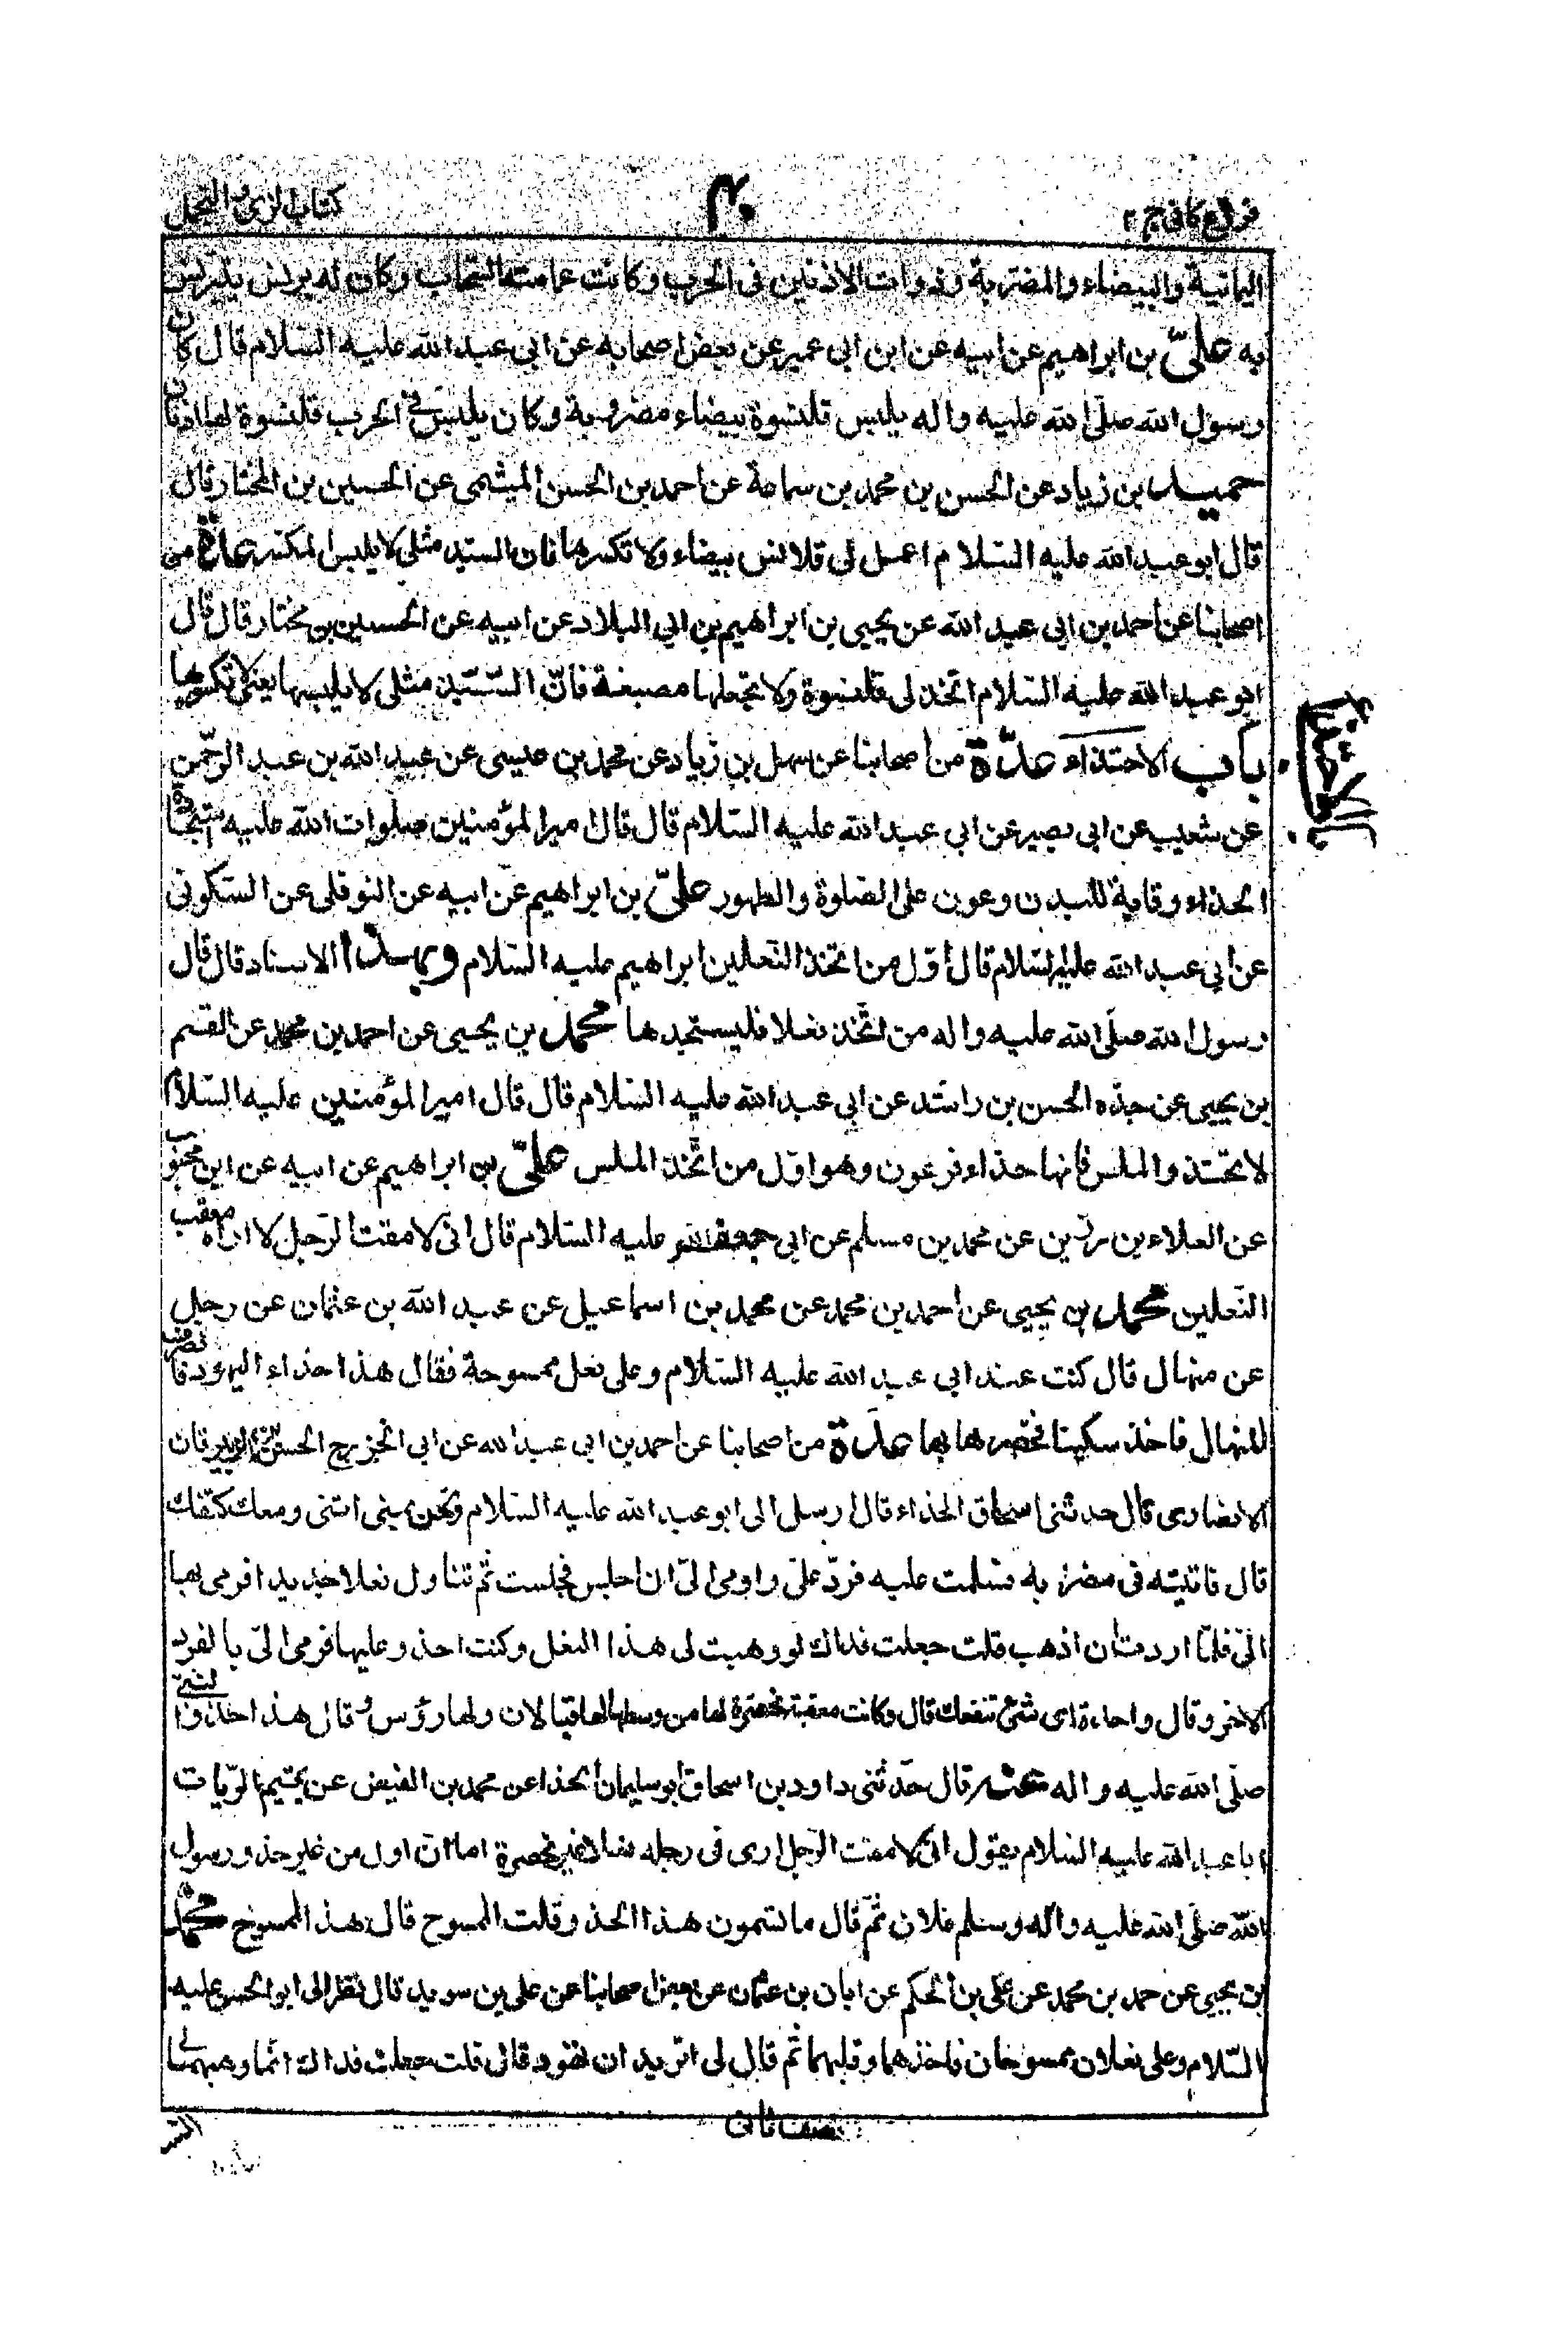 فروع كافى ج ٢
٣٠
كتاب الزى و التجمل
اليمانية والبيضاء والمضربة وذوات الاذنين فى الحرب وكانت عمامته السحاب وكان له برنس يتبرنس
به علىّ بن ابراهيم عن ابيه عن ابن ابى عمير عن بعض اصحابه عن ابى عبد الله عليه السلام قال كان
رسول الله صلّى الله عليه واله يلبس قلنسوة بيضاء مضروبة وكان يلبس فى الحرب قلنسوة لها اذنان
حميد بن زياد عن الحسن بن محمد بن سماعة عن احمد بن الحسن الميثمى عن الحسين بن المختار قال
قال ابو عبد الله عليه السلام اعمل لى قلانس بيضاء ولا تكسرها فان السيد مثلى لا يلبس المكسر عدّة من
اصحابنا عن احمد بن ابى عبد الله عن يحيى بن ابراهيم بن ابى البلاد عن ابيه عن الحسين بن مختار قال قال
ابو عبد الله عليه السلام اتّخذ لى قلنسوة ولا تجعلها مصبغة فانّ السّيّد مثلى لا يلبسها يعنى لا تكسرها
باب الاحتذاء عدّة من اصحابنا عن سهل بن زياد عن محمد بن عيسى عن عبد الله بن عبد الرحمن
باب الاحتذاء
عن شعيب عن ابى بصير عن ابى عبد الله عليه السّلام قال قال امير المؤمنين صلوات الله عليه استجادة
الحذاء وقاية للبدن وعون على الصّلوة والطهور علىّ بن ابراهيم عن ابيه عن النوفلى عن السّكونى
عن ابى عبد الله عليه السّلام قال اوّل من اتخذ النّعلين ابراهيم عليه السّلام وبهذا الاسناد قال قال
رسول الله صلّى الله عليه واله من اتّخذ نعلا فليستجدها محمد بن يحيى عن احمد بن محمد عن القسم
بن يحيى عن جدّه الحسن بن راشد عن ابى عبد الله عليه السّلام قال قال امير المؤمنين عليه السّلام
لا تحتذوا الملس فانها حذاء فرعون وهو اوّل من اتّخذ الملس علىّ بن ابراهيم عن ابيه عن ابن محبوب
عن العلاء بن رزين عن محمد بن مسلم عن ابى جعفر عليه السّلام قال انّى لامقت الرّجل لا اراه معقب
النّعلين محمد بن يحيى عن احمد بن محمد عن محمد بن اسماعيل عن عبد الله بن عثمان عن رجل
عن منهال قال كنت عند ابى عبد الله عليه السّلام وعلى نعل ممسوحة فقال هذا حذاء اليهود فانصرف
المنهال فاخذ سكينا فخصرها بها عدّة من اصحابنا عن احمد بن ابى عبد الله عن ابى الخزرج الحسن بن الزبرقان
الانصارى قال حدثنى اسحاق الحذاء قال ارسل الى ابو عبد الله عليه السّلام ونحن بمنى ائتنى ومعك كنفك
قال فاتيته فى مضربه فسلمت عليه فردّ علىّ واومى الىّ ان اجلس فجلست ثمّ تناول نعلا جديدا فرمى بها
الىّ فلمّا اردت ان اذهب قلت جعلت فداك لو وهبت لى هذا النعل وكنت احذو عليها فرمى الىّ بالفرد
الاخر وقال واحدة اى شئ تنفعك قال وكانت معقبة مخصرة لها من وسطها لها قبالان ولها رؤس وقال هذا حذو النّبىّ
صلّى الله عليه واله عنه قال حدّثنى داود بن اسحاق ابو سليمان الحذا عن محمد بن الفيض عن تيم الرّباب
ابا عبد الله عليه السّلام يقول انّى لامقت الرّجل ارى فى رجله نعلا غير مخصرة اما انّ اول من غير حذو رسول
الله صلّى الله عليه واله وسلم فلان ثمّ قال ما تسمون هذا الحذو قلت الممسوح قال هذا الممسوح محمد
بن يحيى عن حمد بن محمد عن على بن الحكم عن ابان بن عثمان عن بعض اصحابنا عن على بن سويد قال نظر الى ابو الحسن عليه
السّلام وعلى نعلان ممسوحتان فاخذهما وقلبهما ثمّ قال لى اتريد ان تهود قال قلت جعلت فداك انّما وهبهما لى
نصف ثانى